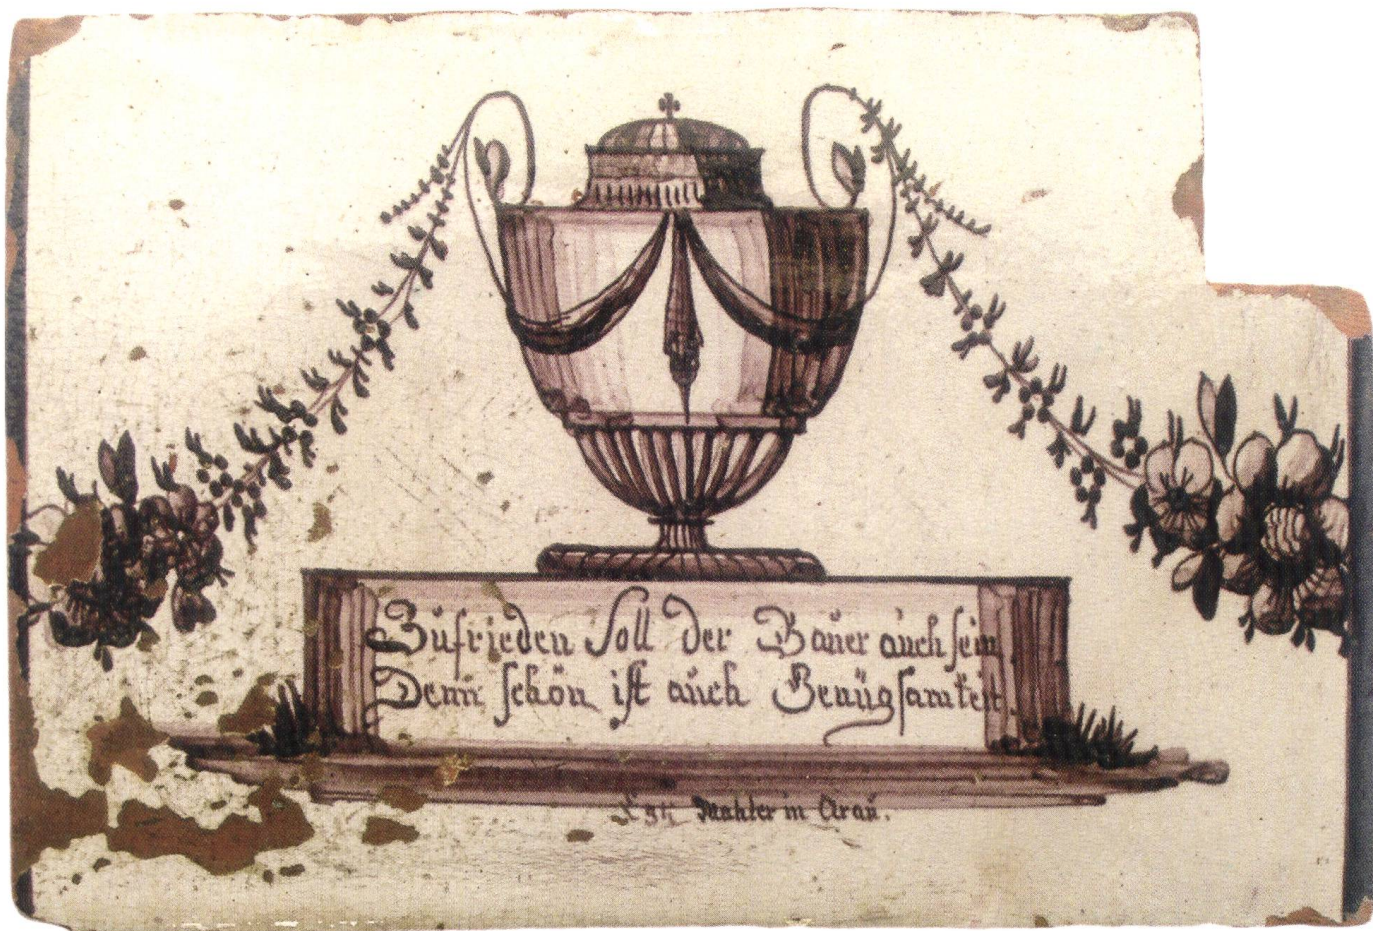 Zufrieden Soll der Bauer auch sein,
Denn schön ist auch Genügsamkeit.
Mahler in Arau.